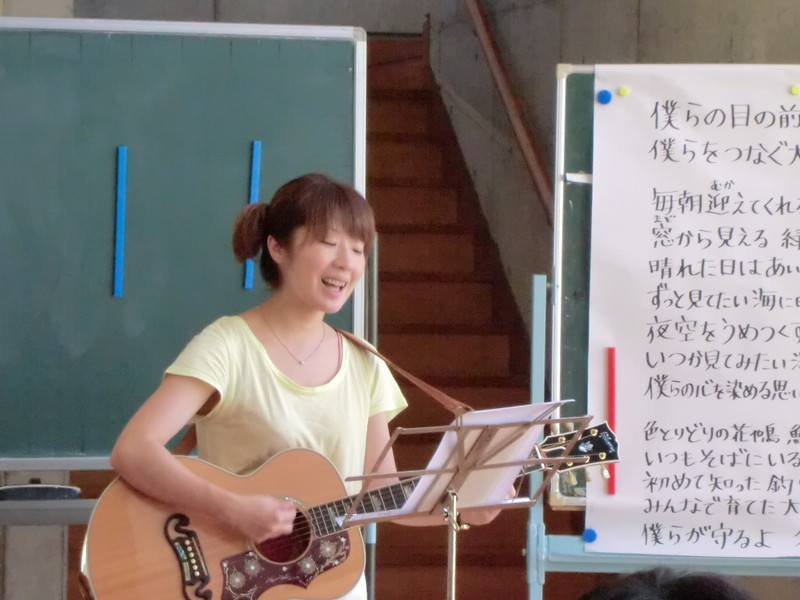 僕らの目の前
僕らをつなぐ大
毎朝迎えてくれる
むか
窓から見える 緑
まど
晴れた日はあい
ずっと見てたい海に
夜空をうめつくす
いつか見てみたい
僕らの心を染める思い
色とりどりの花や鳥 魚
いつもそばにいる
初めて知った 釣り
みんなで育てた 大
僕らが守るよ